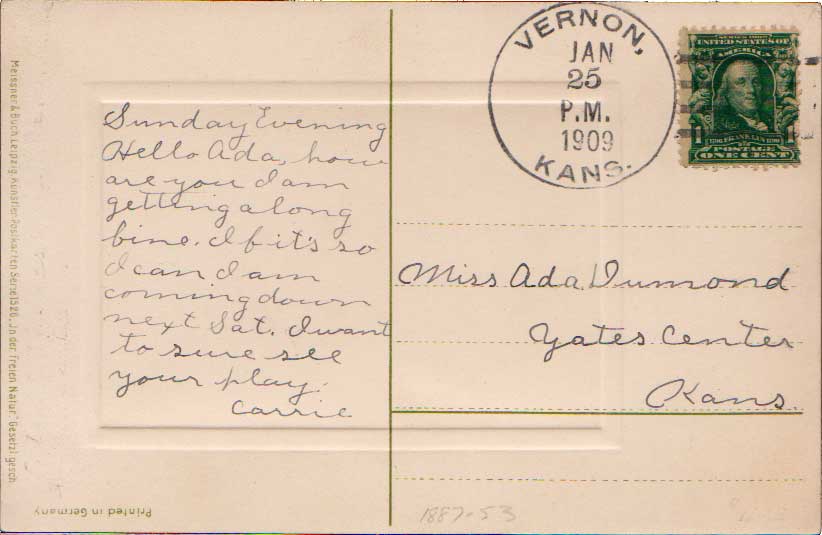 VERNON,
JAN
25
P.M.
1909
KANS.
SERIES 1902
UNITED STATES OF
AMERICA
1 FRANKLIN 1
POSTAGE
ONE CENT
Sunday Evening
Hello Ada, how
are you I am
getting along
fine. If it's so
I can I am
coming down
next Sat. I want
to sure see
your play.
Carrie
Miss Ada Dumond
Yates Center
Kans.
Meissner & Buch Leipzig. Künstler-Postkarten Serie 1526. "In der freien Natur" Gesetzl. gesch.
Printed in Germany
1887-53